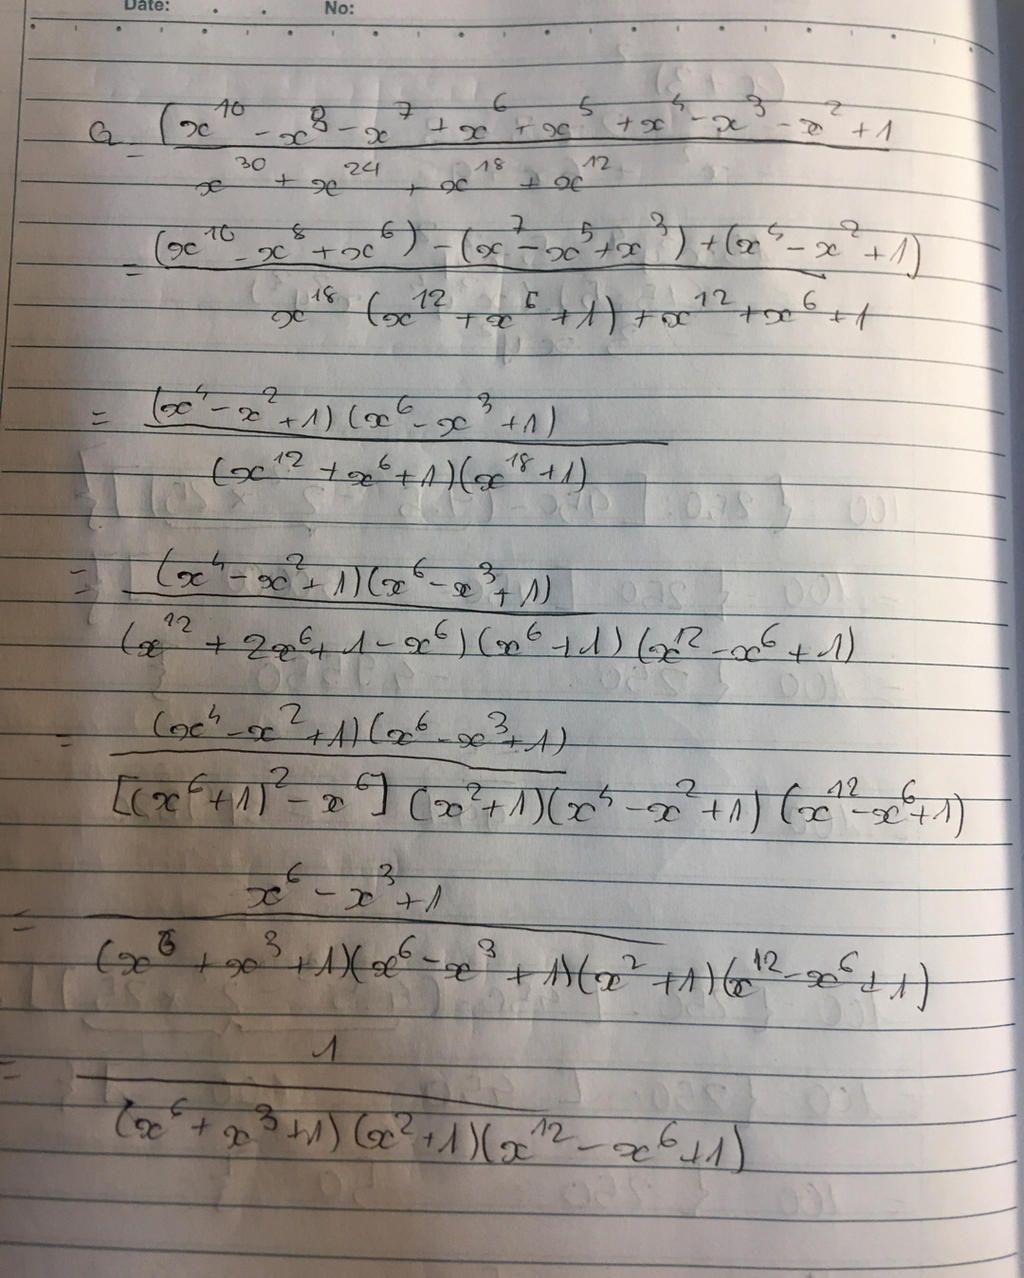 Date: . . No:
Q = (x^10 - x^8 - x^7 + x^6 + x^5 + x^4 - x^3 - x^2 + 1
x^30 + x^24 + x^18 + x^12
= (x^10 - x^8 + x^6) - (x^7 - x^5 + x^3) + (x^4 - x^2 + 1)
x^18 (x^12 + x^6 + 1) + x^12 + x^6 + 1
= (x^4 - x^2 + 1)(x^6 - x^3 + 1)
(x^12 + x^6 + 1)(x^18 + 1)
= (x^4 - x^2 + 1)(x^6 - x^3 + 1)
(x^12 + 2x^6 + 1 - x^6)(x^6 + 1)(x^12 - x^6 + 1)
= (x^4 - x^2 + 1)(x^6 - x^3 + 1)
[(x^6 + 1)^2 - x^6] (x^2 + 1)(x^4 - x^2 + 1)(x^12 - x^6 + 1)
= x^6 - x^3 + 1
(x^6 + x^3 + 1)(x^6 - x^3 + 1)(x^2 + 1)(x^12 - x^6 + 1)
= 1
(x^6 + x^3 + 1)(x^2 + 1)(x^12 - x^6 + 1)